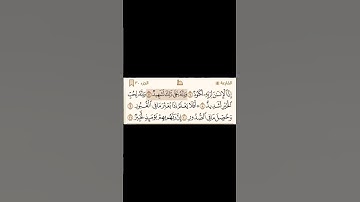 إِنَّ ٱلْإِنسَٰنَ لِرَبِّهِۦ لَكَنُودٌ ٦ وَإِنَّهُۥ عَلَىٰ ذَٰلِكَ لَشَهِيدٌ ٧ وَإِنَّهُۥ لِحُبِّ
ٱلْخَيْرِ لَشَدِيدٌ ٨ ۞ أَفَلَا يَعْلَمُ إِذَا بُعْثِرَ مَا فِى ٱلْقُبُورِ ٩
وَحُصِّلَ مَا فِى ٱلصُّدُورِ ١٠ إِنَّ رَبَّهُم بِهِمْ يَوْمَئِذٍ لَّخَبِيرٌۢ ١١